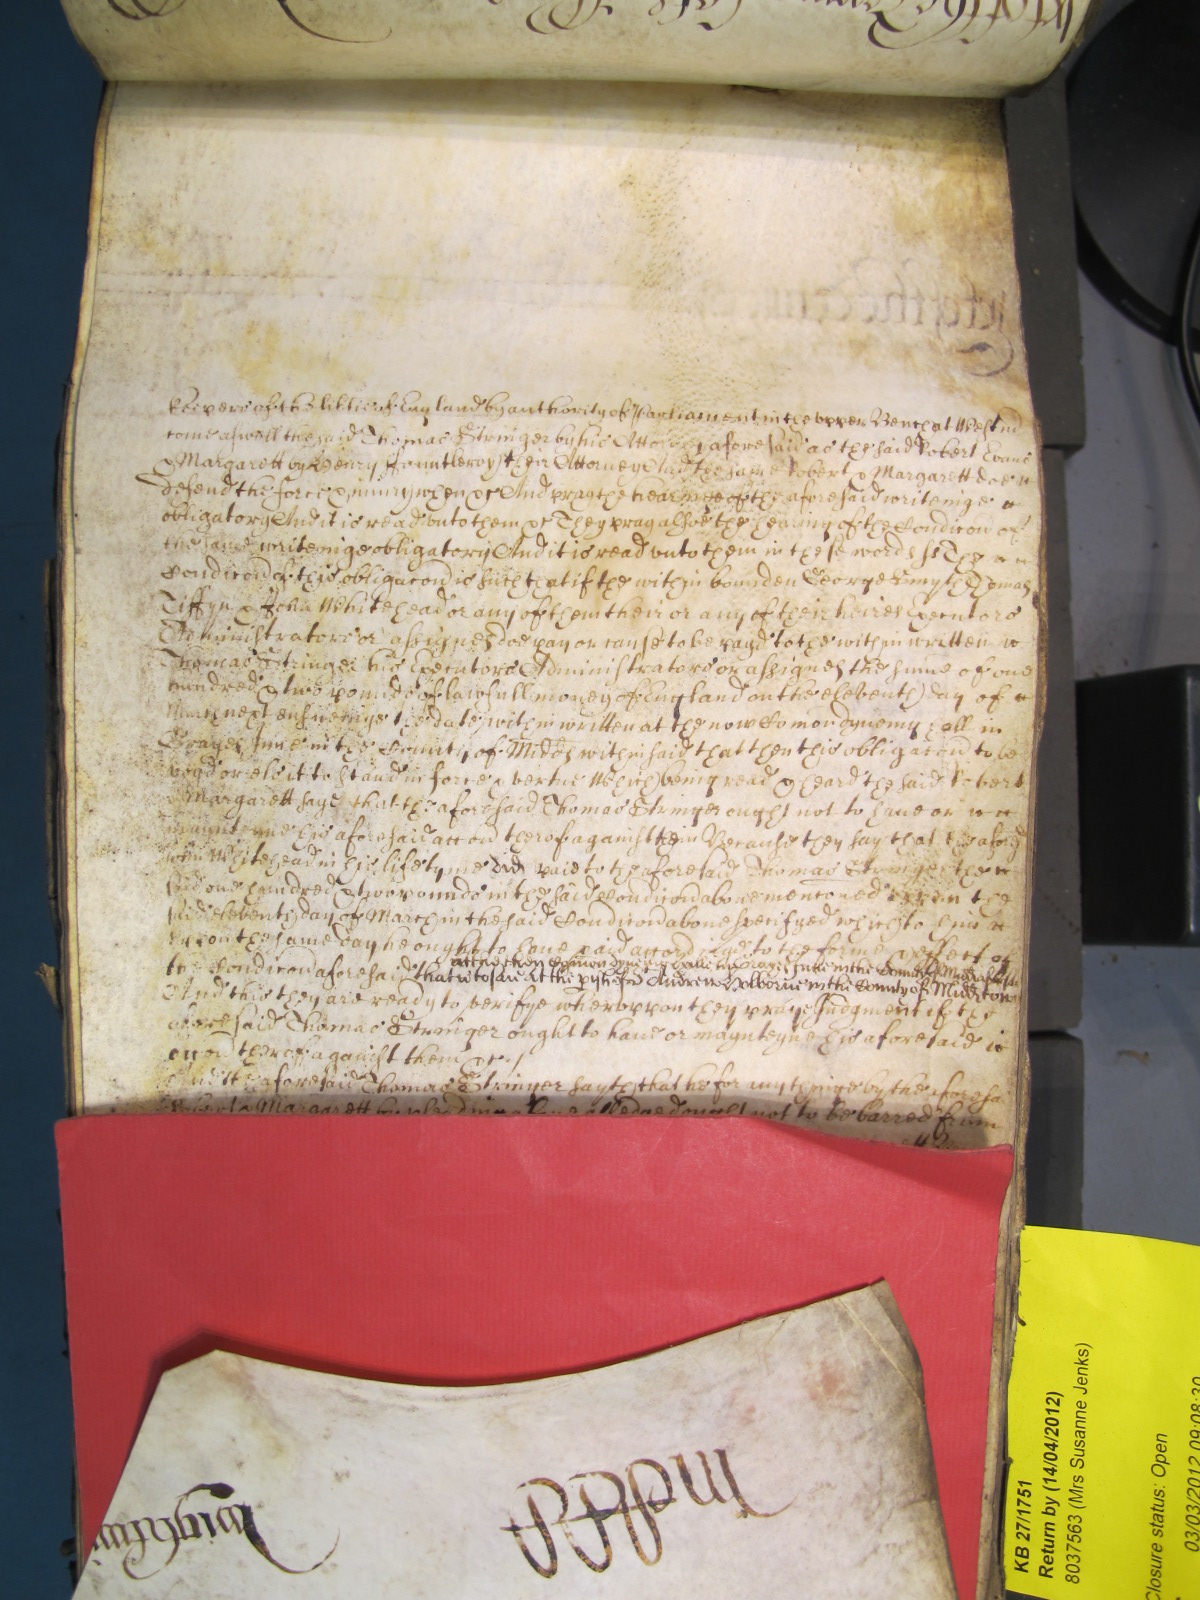 keepers of the libtie of England by authority of Parliament in the upper Bench at Westm
come aswell the said Thomas Stringer by his Attorney aforesaid as the said Robert Evans
& Margarett by Henry ffountleroy their Attorney And the same Robert & Margarett doe
defend the force & iniury when &c And pray the hearinge of the aforesaid writeinge
obligatory And it is read unto them &c They pray alsoe the hearing of the Condicon of
the same writeinge obligatory And it is read unto them in these words ss The
Condicon of this obligacon is such that if the within bounden George Smyth Thomas
Tiffyn & John Whitehead or any of them their or any of their heires Executors
Administrators or assignes doe pay or cause to be payd to the within written
Thomas Stringer his Executors Administrators or assignes the sume of one
hundred & two pounds of lawfull money of England on the eleventh day of
March next ensueinge the date within written at the now Comon dyneing hall in
Grayes Inne in the County of Midds within said that then this obligacon to be
voyd or els it to stand in force & vertue Which being read & heard the said Robert
& Margarett say that the aforesaid Thomas Stringer ought not to haue or
mainteyne his aforesaid accon therof against them Because they say that the aforesd
John Whitehead in his life tyme did paie to the aforesaid Thomas Stringer the
said one hundred & two pounds in the said Condicon aboue menconed upon the
said eleventh day of March in the said Condicon aboue specifyed which to him
upon the same day he ought to haue paid according to the forme & effect of
att the then Comon dyneing hall in Grayes Inne in the County of Midd aforesaid
the Condicon aforesaid that is to saie At the pish of St Andrewes Holborne in the County of Midd
And this they are ready to verifye wherupon they praye Judgment if the
aforesaid Thomas Stringer ought to haue or maynteyne his aforesaid
accon therof against them &c
And the aforesaid Thomas Stringer sayth that he for any thinge by the aforesa
Robert & Margarett by pleadinge aboue alledged ought not to be barred from
Midd
KB 27/1751
Return by (14/04/2012)
8037563 (Mrs Susanne Jenks)
Closure status: Open
03/03/2012 09:08:30